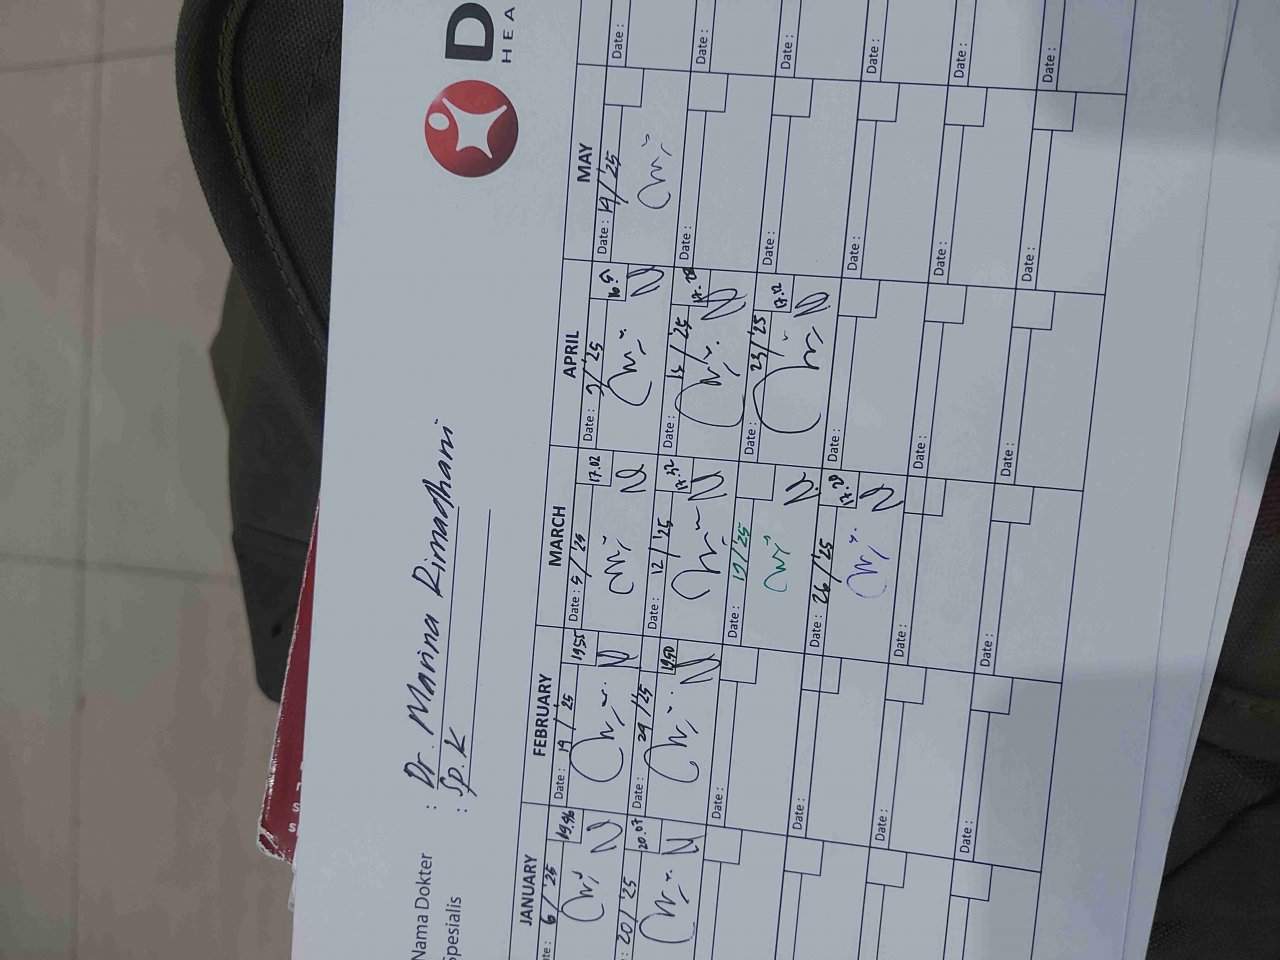 D
HEA
Nama Dokter : Dr. Marina Rimadhani
Spesialis : Sp.K
JANUARY FEBRUARY MARCH APRIL MAY
te: 6/'25 19.46 Date: 19/25 19.55 Date: 5/'25 17.02 Date: 9/'25 Date: 19/'25 Date:
: 20/'25 20.07 Date: 24/'25 19.50 Date: 12/'25 17.32 Date: /'25 17.28 Date: Date:
Date: Date: 17/'25 Date: 23/'25 17.12 Date: Date:
Date: Date: 26/'25 17.29 Date: Date: Date:
Date: Date: Date: Date: Date:
Date: Date: Date: Date: Date: